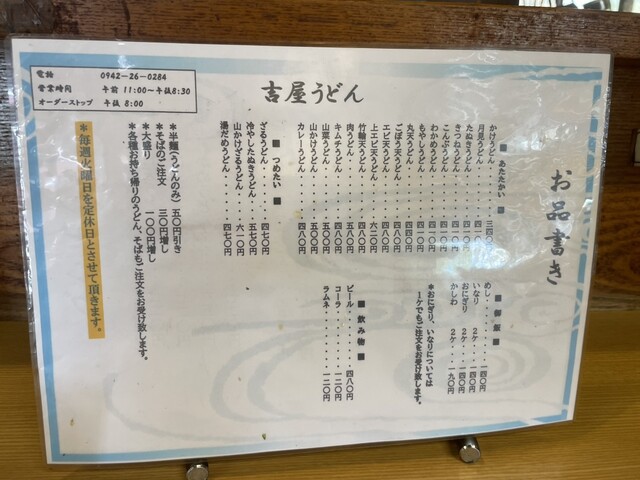 お品書き
吉屋うどん
電話 0942-26-0284
営業時間 午前 11:00~午後8:30
オーダーストップ 午後 8:00
■ あたたかい ■
かけうどん
月見うどん
たぬきうどん
きつねうどん
こんぶうどん
わかめうどん
もやしうどん
丸天うどん
ごぼう天うどん
エビ天うどん
上エビ天うどん 六二〇円
竹輪天うどん 四八〇円
肉うどん 五八〇円
キムチうどん 四八〇円
山菜うどん 五〇〇円
山かけうどん 五〇〇円
カレーうどん 四八〇円
■ つめたい ■
ざるうどん 四七〇円
冷やしたぬきうどん 五七〇円
山かけざるうどん 六一〇円
湯だめうどん 四七〇円
*半麺(うどんのみ) 五〇円引き
*そばのご注文 三〇円増し
*大盛り 一〇〇円増し
*各種お持ち帰りのうどん、そばもご注文をお受け致します。
*毎週火曜日を定休日とさせて頂きます。
■ 御飯 ■
めし 一四〇円
いなり 2ケ 一四〇円
おにぎり 2ケ 一四〇円
かしわ 2ケ 一九〇円
*おにぎり、いなりについては
1ケでもご注文をお受け致します。
■ 飲み物 ■
ビール 四八〇円
コーラ 一二〇円
ラムネ 一二〇円